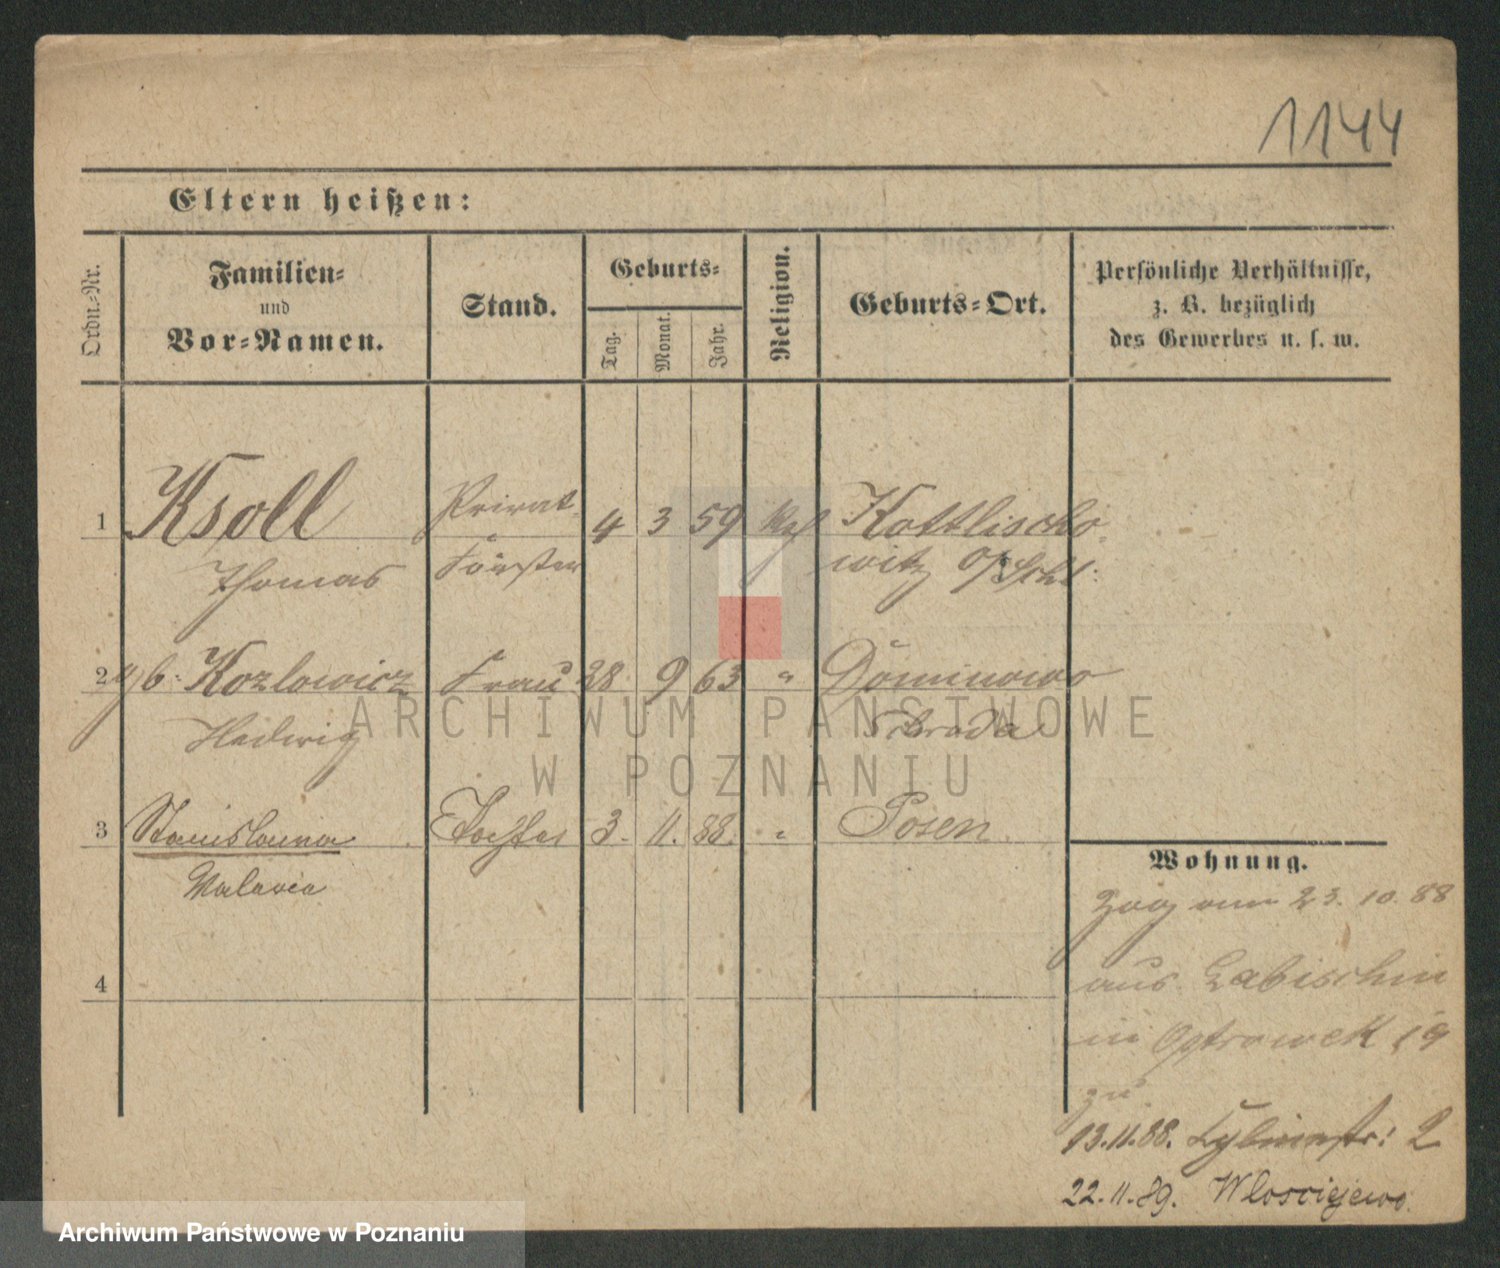 1144
Eltern heißen:
Ordn.-Nr.
Familien-
und
Vor-Namen.
Stand.
Geburts-
Tag.
Monat.
Jahr.
Religion.
Geburts-Ort.
Persönliche Verhältnisse,
z. B. bezüglich
des Gewerbes u. s. w.
1 Ksoll Privat 4 3 59 Kottlischo
Thomas Förster witz O/Schl.
2 gb. Kozlowicz Frau 28 9 63 " Dominowo
Hedwig Schroda
3 Stanislawa Tochter 3. 11. 88. " Posen
4
Wohnung.
Zuzg vom 23. 10. 88
aus Labischin
in Ostrowek 19
zu
13.11.88. 2
22.11.89. Wlosciejewo.
ARCHIWUM PAŃSTWOWE
W POZNANIU
Archiwum Państwowe w Poznaniu